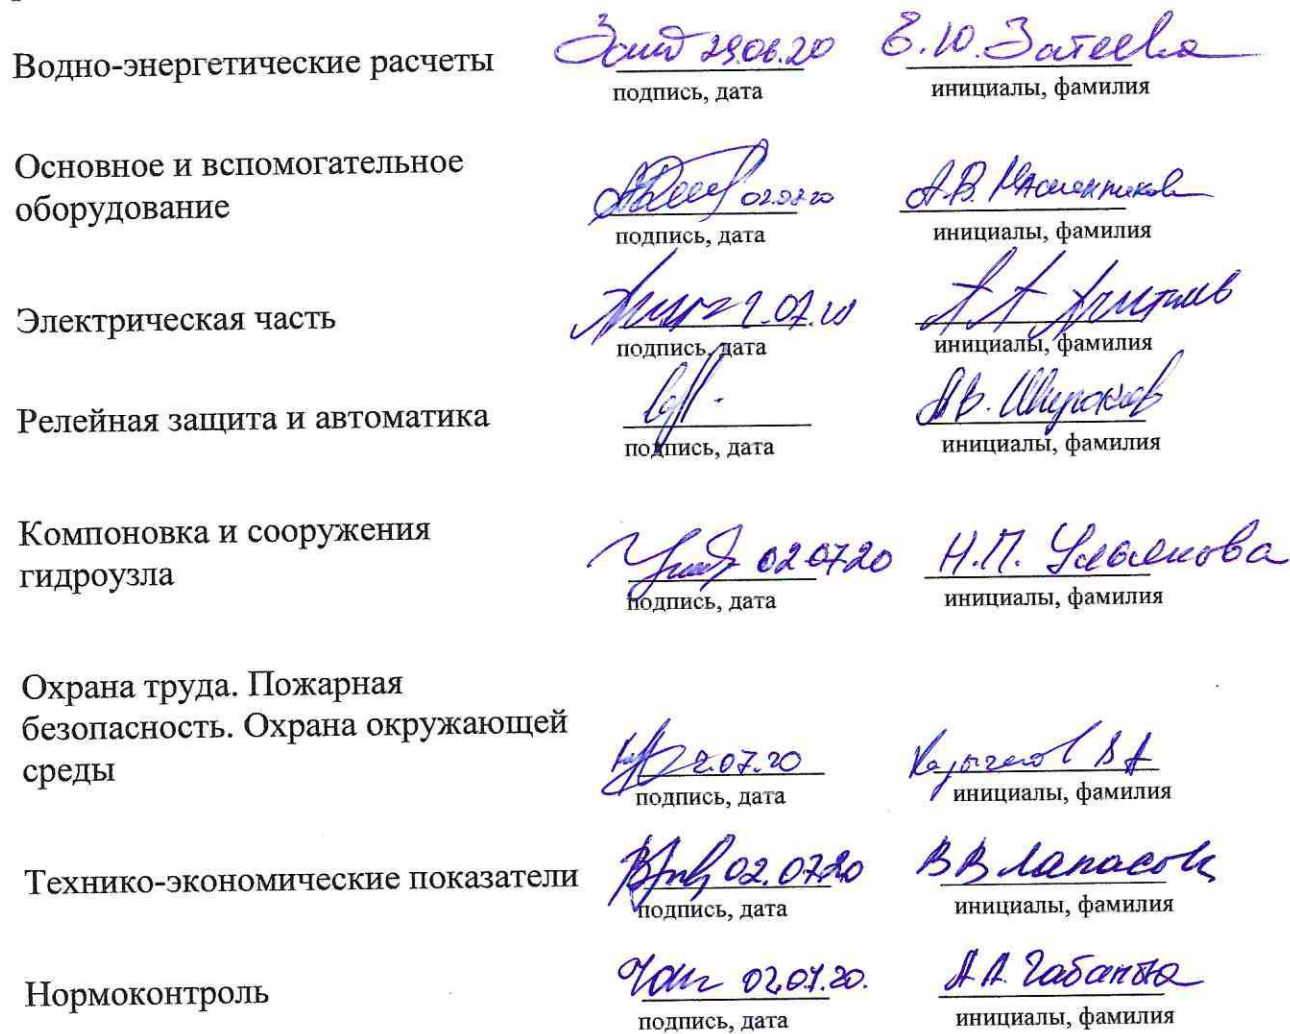 Водно-энергетические расчеты 29.06.20 Е.Ю. Затеева
подпись, дата инициалы, фамилия
Основное и вспомогательное
оборудование 02.07.20 А.В.
подпись, дата инициалы, фамилия
Электрическая часть 2.07.20 А А
подпись, дата инициалы, фамилия
Релейная защита и автоматика А.В. Широков
подпись, дата инициалы, фамилия
Компоновка и сооружения
гидроузла 02.07.20 Н.П. Ульянова
подпись, дата инициалы, фамилия
Охрана труда. Пожарная
безопасность. Охрана окружающей
среды 2.07.20
подпись, дата инициалы, фамилия
Технико-экономические показатели 02.07.20 В В
подпись, дата инициалы, фамилия
Нормоконтроль 02.07.20. А.А.
подпись, дата инициалы, фамилия